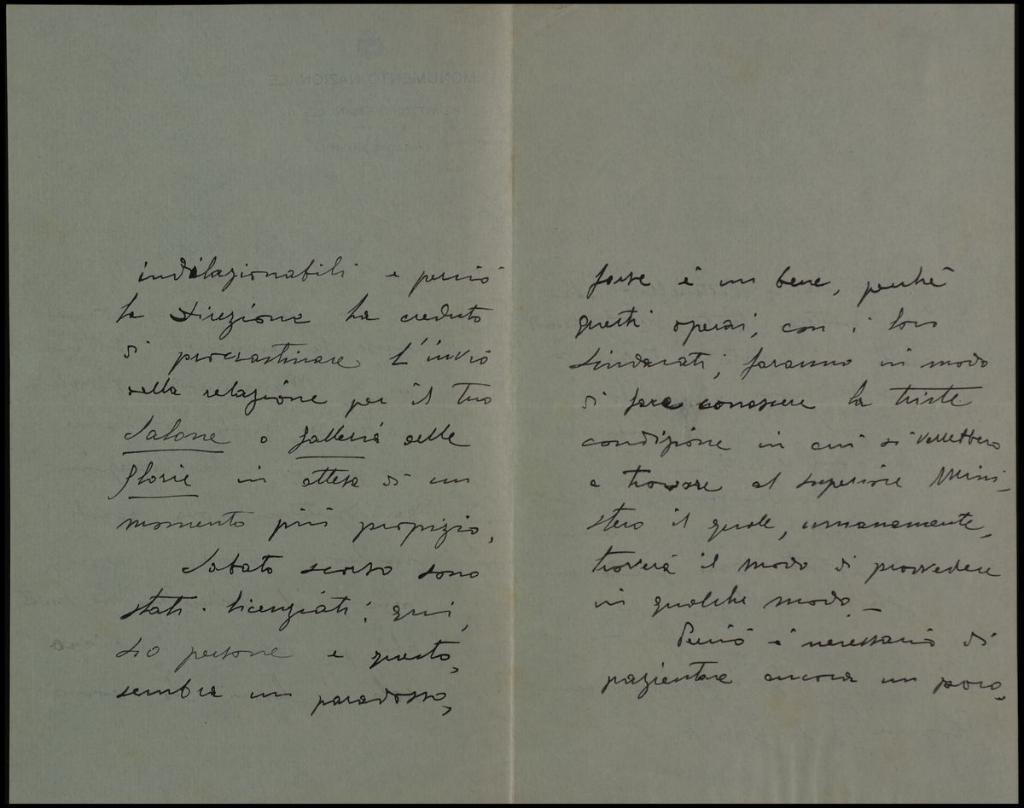 MONUMENTO NAZIONALE
indilazionabili e perciò
la Direzione ha creduto
di procrastinare l'invio
della relazione per il tuo
Salone o galleria delle
glorie in attesa di un
momento più propizio.
Sabato scorso sono
stati licenziati, qui,
persone e questo,
sembra un paradosso,
forse è un bene, perché
questi operai, con i loro
Sindacati, faranno in modo
di fare conoscere la triste
condizione in cui si verrebbero
a trovare al superiore Mini-
stero il quale, umanamente,
troverà il modo di provvedere
in qualche modo –
Perciò è necessario di
pazientare ancora un poco.